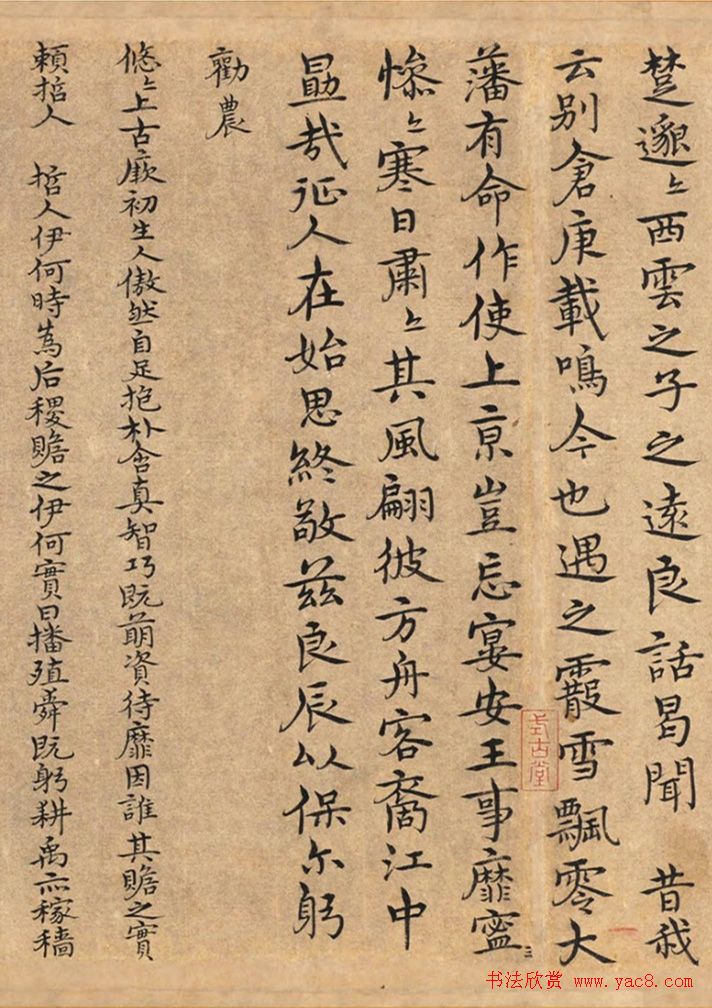 楚邈〻西雲之子之遠良話曷聞　昔我
云别倉庚載鳴今也遇之霰雪飄零大
藩有命作使上京豈忘宴安王事靡寍
慘〻寒日肅〻其風翩彼方舟容裔江中
勗㢤征人在始思終敬茲良辰以保尓躬
勸農
悠〻上古厥初生人傲然自足抱朴含真智巧既萌資待靡因誰其贍之實
頼哲人　哲人伊何時為后稷贍之伊何實曰播殖舜既躬耕禹亦稼穡
式古堂
书法欣赏 www.yac8.com